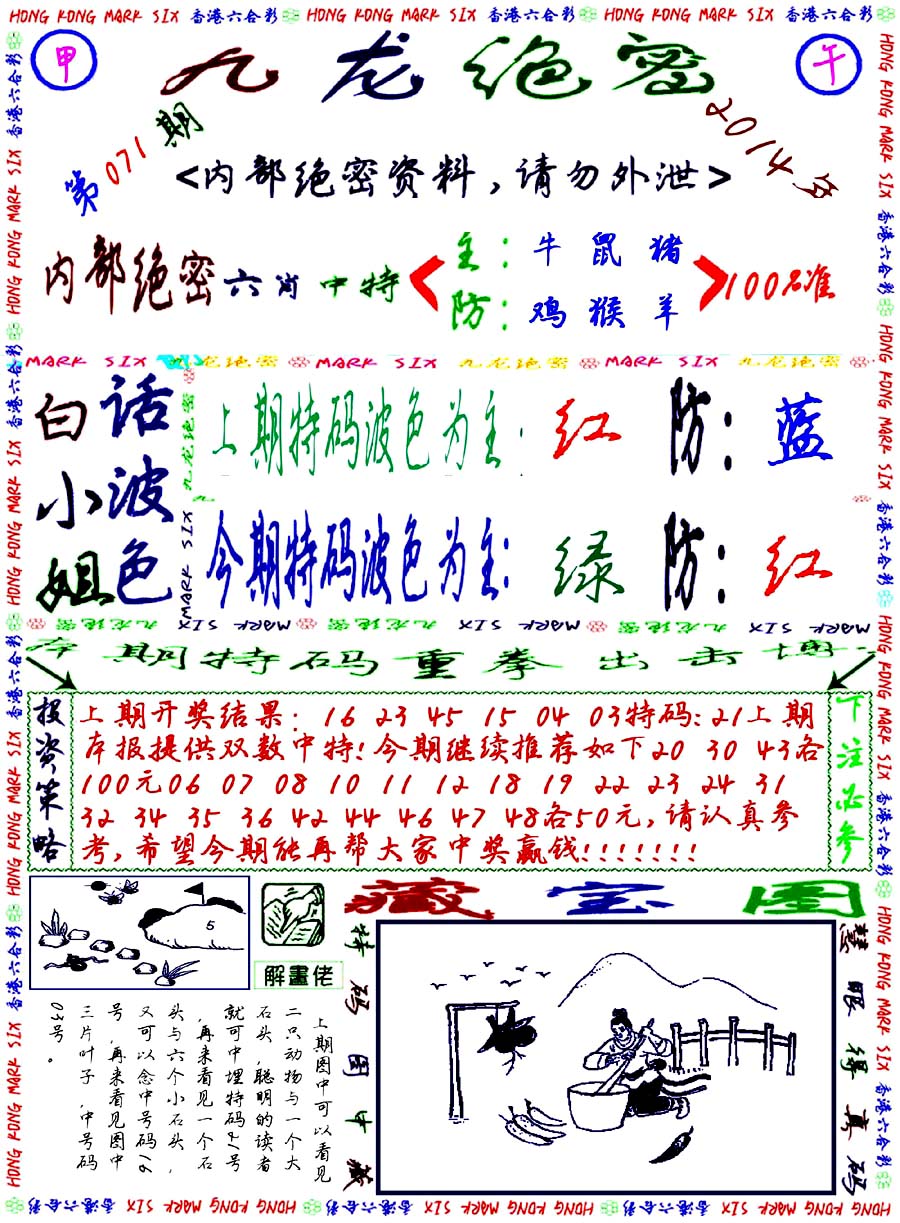 HONG KONG MARK SIX 香港六合彩 HONG KONG MARK SIX 香港六合彩 HONG KONG MARK SIX 香港六合彩
甲
九龙绝密
午
第071期
2014年
<内部绝密资料,请勿外泄>
内部绝密六肖中特
主:牛 鼠 猪
防:鸡 猴 羊
100%准
MARK SIX 九龙绝密 MARK SIX 九龙绝密 MARK SIX 九龙绝密
白小姐
话波色
上期特码波色为主:红 防:蓝
今期特码波色为主:绿 防:红
九龙绝密 MARK SIX 九龙绝密 MARK SIX 九龙绝密 MARK SIX
本期特码重拳出击博
投资策略
上期开奖结果: 16 23 45 15 04 03特码:21上期
本报提供双数中特!今期继续推荐如下20 30 43各
100元06 07 08 10 11 12 18 19 22 23 24 31
32 34 35 36 42 44 46 47 48各50元,请认真参
考,希望今期能再帮大家中奖赢钱!!!!!!!
下注必参
5
解畫佬
藏宝图
特码图中藏
慧眼得真码
上期图中可以看见
二只动物与一个大
石头,聪明的读者
就可中埋特码21号
,再来看见一个石
头与六个小石头,
又可以念中号码16
号,再来看见图中
三片叶子,中号码
03号。
HONG KONG MARK SIX 香港六合彩 HONG KONG MARK SIX 香港六合彩 HONG KONG MARK SIX 香港六合彩